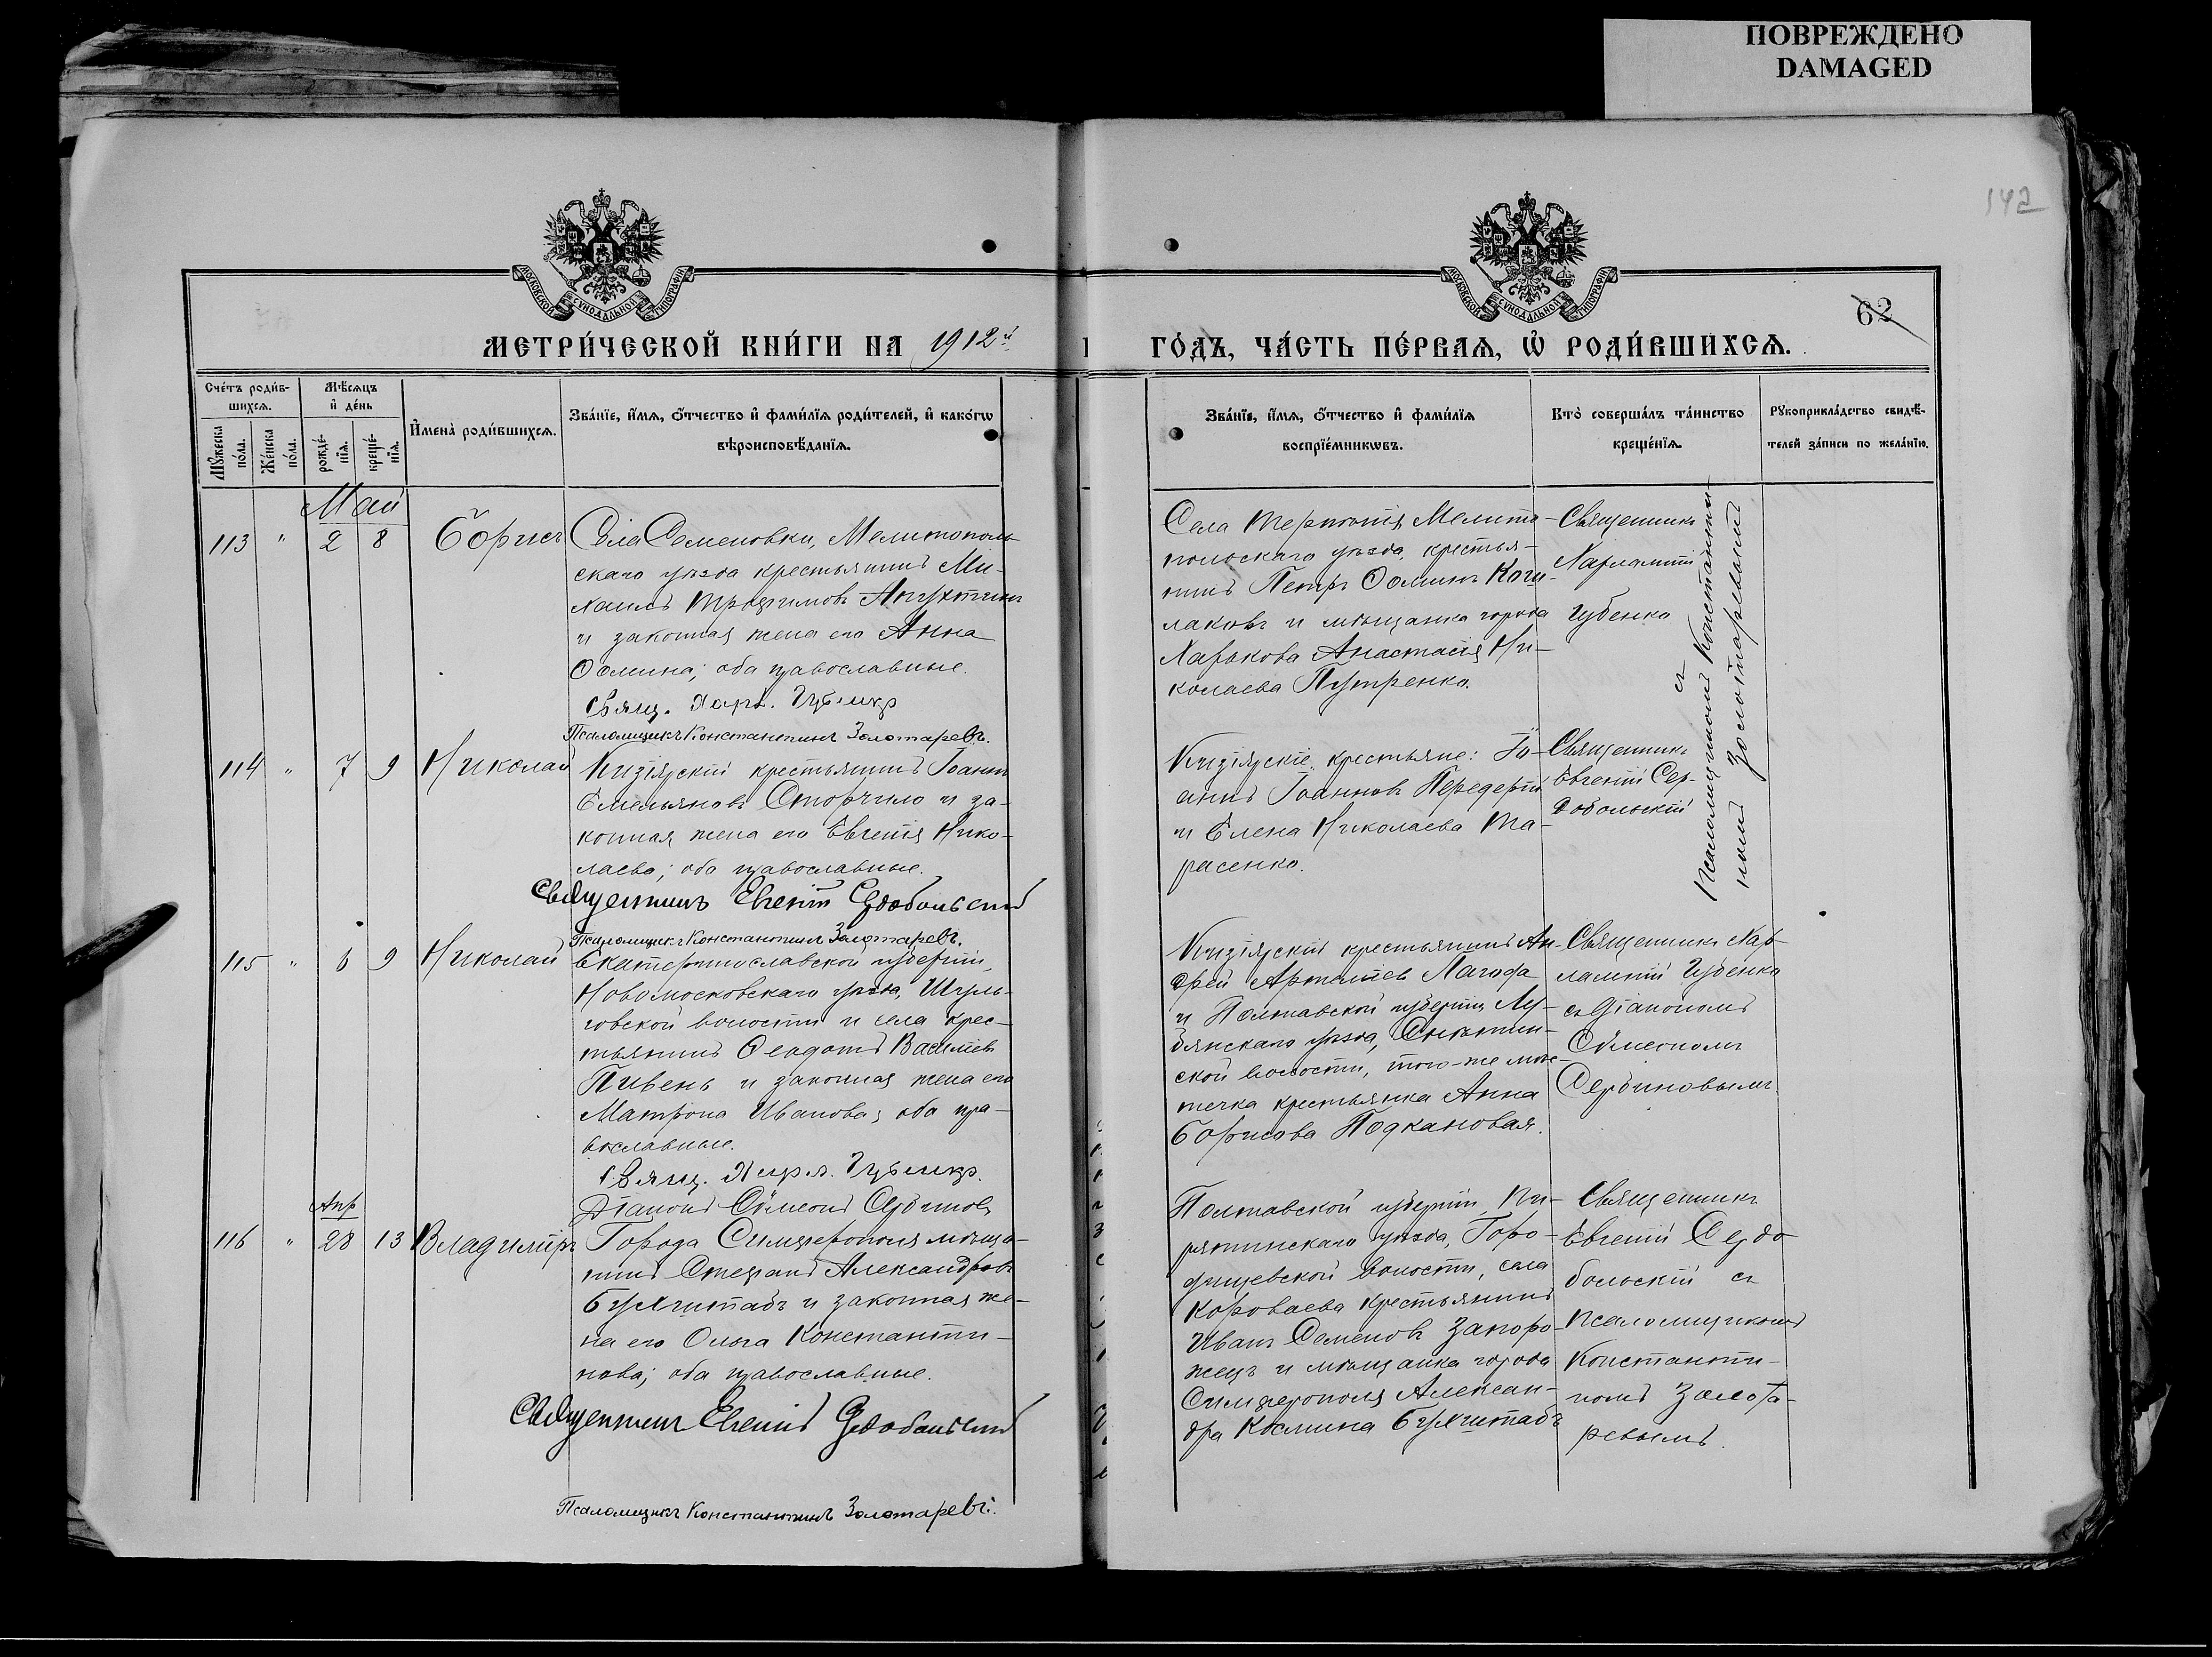 ПОВРЕЖДЕНО
DAMAGED
142
МОСКОВСКОЙ СУНОДАЛЬНОЙ ТИПОГРАФІИ
МОСКОВСКОЙ СУНОДАЛЬНОЙ ТИПОГРАФІИ
62
МЕТРИ́ЧЕСКОЙ КНИ́ГИ НА 1912й
ГО́ДЪ, ЧА́СТЬ ПЕ́РВАѦ, Ѡ РОДИ́ВШИХСѦ.
Сче́тъ роди́в-
шихсѧ.
Мꙋжеска по́ла.
Же́нска по́ла.
Мѣ́сѧцъ
и де́нь
рожде́-
нїѧ.
креще́-
нїѧ.
И҆мена̀ роди́вшихсѧ.
Зва́нїе, и҆́мѧ, ѻ҆́тчество и҆ фами́лїѧ роди́телей, и҆ како́гѡ
вѣроисповѣ́данїѧ.
Зва́нїе, и҆́мѧ, ѻ҆́тчество и҆ фами́лїѧ
воспрїе́мникѡвъ.
Кто̀ соверша́лъ та́инство
креще́нїѧ.
Рꙋкоприкла́дство свидѣ́-
телей за́писи по жела́нїю.
Май
113 " 2 8 Борисъ
Села Семеновки, Мелитополь-
скаго уѣзда крестьянинъ Ми-
хаилъ Трофимовъ
и законная жена его Анна
Ѳомина; оба православные.
Свящ. Харл. Губенко
Псаломщикъ Константинъ Золотаревъ.
Села Терпѣнія Мелито-
польскаго уѣзда, крестья-
нинъ Петръ Ѳоминъ Коги-
лаковъ и мѣщанка города
Харькова Анастасія Ни-
колаева Путренко.
Священникъ
Харлампій
Губенко
съ
Псаломщикомъ Константи-
номъ Золотаревымъ
114 " 7 9 Николай
Кизіярскій крестьянинъ Іоаннъ
Емельяновъ Сторчило и за-
конная жена его Евгенія Нико-
лаева; оба православные.
Священникъ Евгеній Сердобольскій
Псаломщикъ Константинъ Золотаревъ.
Кизіярскіе крестьяне: Іо-
аннъ Іоанновъ Передерій
и Елена Николаева Та-
расенко.
Священникъ
Евгеній Сер-
добольскій
115 " 6 9 Николай
Екатеринославской губерніи,
Новомосковскаго уѣзда, Шуль-
говской волости и села крес-
тьянинъ Ѳеодотъ Васильевъ
Пивень и законная жена его
Матрона Иванова; оба пра-
вославные.
Свящ. Харл. Губенко.
Діаконъ Сѵмеонъ Сербиновъ
Кизіярскій крестьянинъ Ан-
дрей Артемьевъ Лагода
и Полтавской губерніи Лу-
бянскаго уѣзда, Снѣтин-
ской волости, того-же мѣс-
течка крестьянка Анна
Борисова Подкановая.
Священникъ Хар-
лампій Губенко
съ Діакономъ
Сѵмеономъ
Сербиновымъ.
Апр
116 " 28 13 Владиміръ
Города Симферополя мѣща-
нинъ Стефанъ Александровъ
Бухштабъ и законная же-
на его Ольга Константи-
нова; оба православные.
Священникъ Евгеній Сердобольскій
Псаломщикъ Константинъ Золотаревъ.
Полтавской губерніи, Пи-
рятинскаго уѣзда, Горо-
дищевской волости, села
Короваева крестьянинъ
Иванъ Семеновъ Запоро-
жецъ и мѣщанка города
Симферополя Алексан-
дра Космина Бухштабъ
Священникъ
Евгеній Сердо-
больскій съ
Псаломщикомъ
Константи-
номъ Золота-
ревымъ.